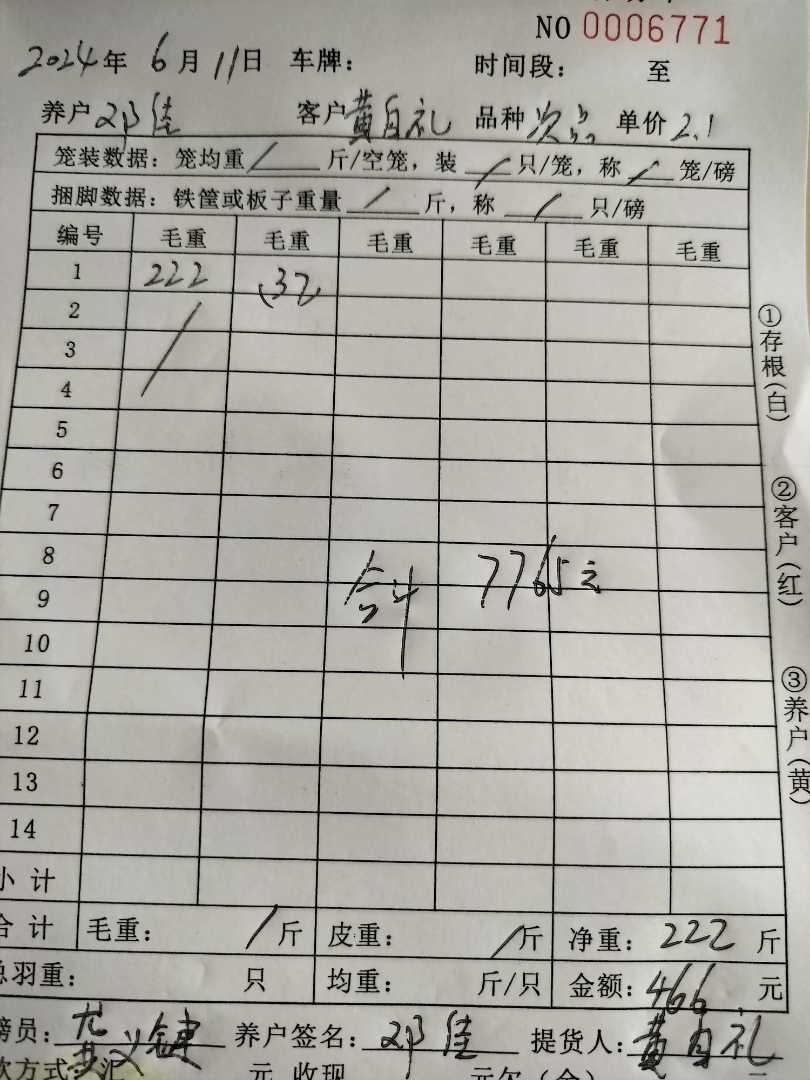 NO 0006771
2024年 6月 11日 车牌： 时间段： 至
养户 邓佳 客户 黄自礼 品种 次品 单价 2.1
笼装数据：笼均重 / 斤/空笼，装 / 只/笼，称 / 笼/磅
捆脚数据：铁筐或板子重量 / 斤，称 / 只/磅
编号 毛重 毛重 毛重 毛重 毛重 毛重
1 222 (37)
2
3
4
5
6
7
8
9
合计 7765元
10
11
12
13
14
小计
合计 毛重： / 斤 皮重： / 斤 净重： 222 斤
总羽重： 只 均重： 斤/只 金额： 466 元
磅员： 养户签名： 邓佳 提货人： 黄自礼
款方式 汇 元 收现 元欠(余)
①存根(白)
②客户(红)
③养户(黄)